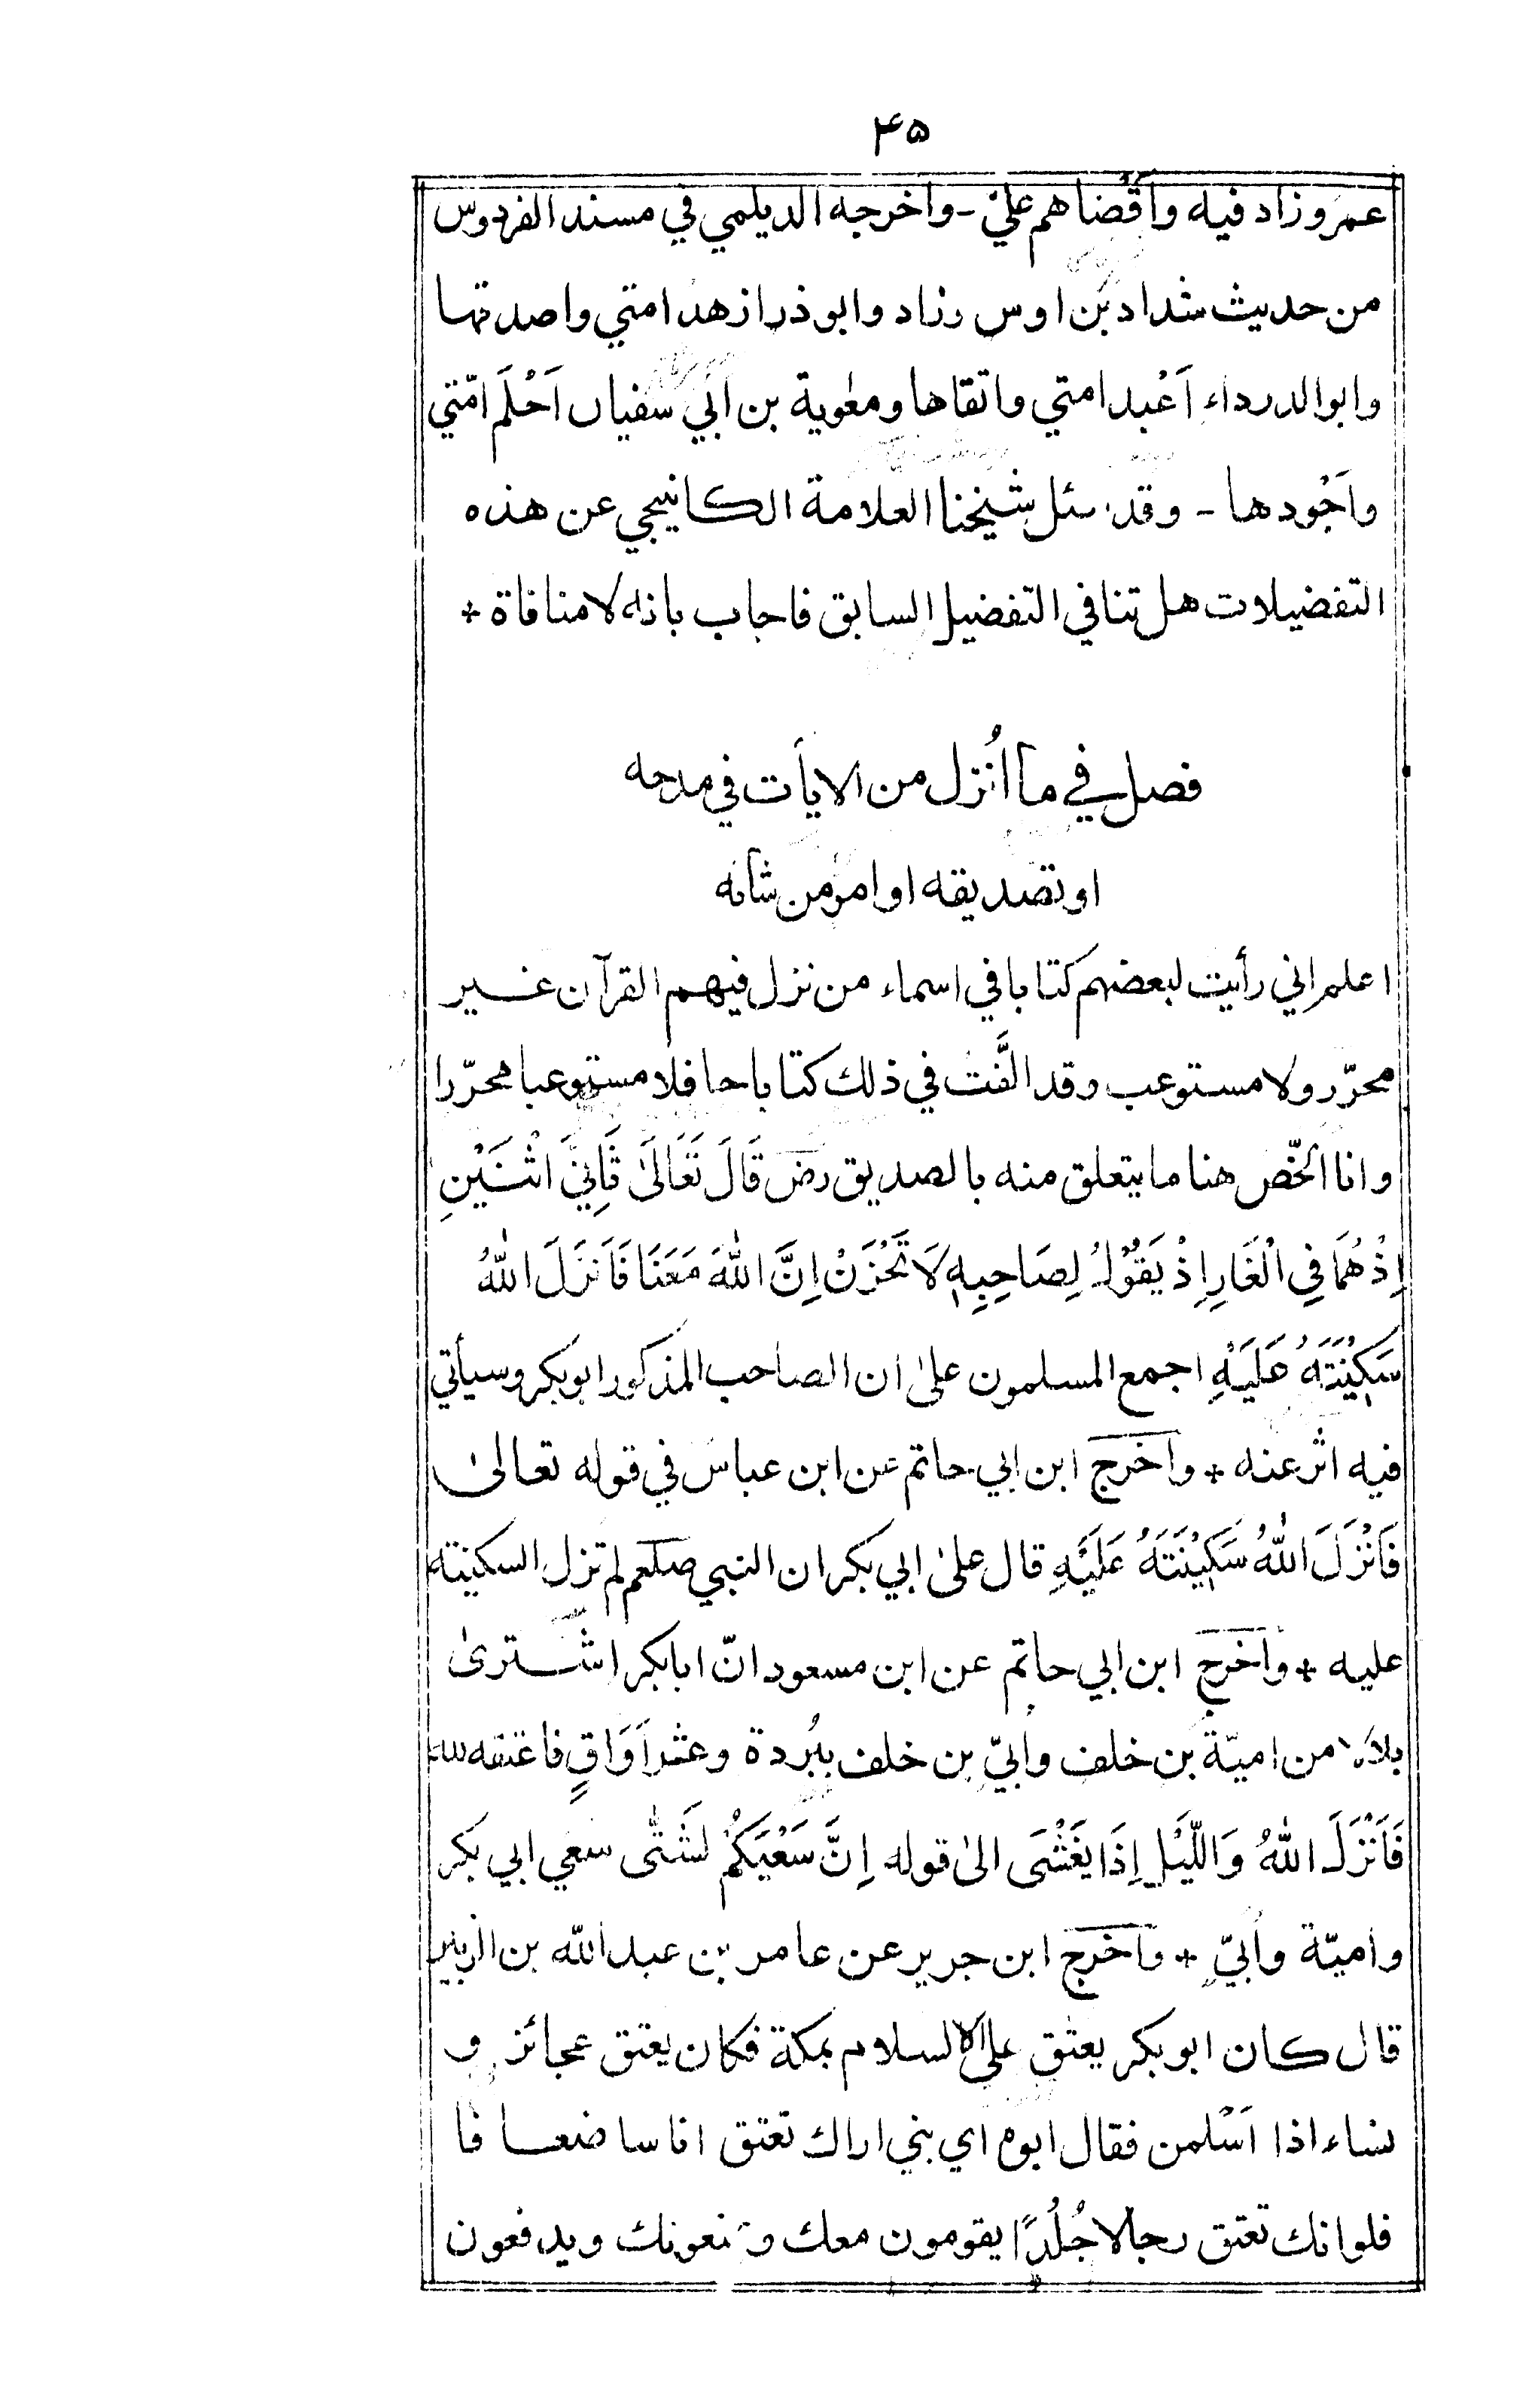 ۴۵
عمر وزاد فيه وأَقْضاهم عليّ - واخرجه الديلمي في مسند الفردوس
من حديث شداد بن اوس وزاد وابو ذر ازهد امتي واصدقها
وابو الدرداء اَعْبد امتي واتقاها ومعٰوية بن ابي سفيان اَحْلَم امّتي
واَجْودها - وقد سئل شيخنا العلامة الكافيجي عن هذه
التفضيلات هل تنافي التفضيل السابق فاجاب بانه لا منافاة +
فصل في ما اُنزل من الايات في مدحه
او تصديقه او امر من شانه
اعلم اني رأيت لبعضهم كتابا في اسماء من نزل فيهم القرآن غير
محرّر ولا مستوعب وقد الَّفت في ذلك كتابا حافلا مستوعبا محرّرا
وانا الخّص هنا ما يتعلق منه بالصديق رض قَالَ تَعَالَىٰ ثَانِيَ اثْنَيْنِ
اِذْ هُمَا فِي الْغَارِ اِذْ يَقُوْلُ لِصَاحِبِهٖ لَا تَحْزَنْ اِنَّ اللّٰهَ مَعَنَا فَاَنزَلَ اللّٰهُ
سَكِيْنَتَهُ عَلَيْهِ اجمع المسلمون علىٰ ان الصاحب المذكور ابوبكر وسيأتي
فيه اثر عنه + واخرج ابن ابي حاتم عن ابن عباس في قوله تعالىٰ
فَاَنْزَلَ اللّٰهُ سَكِيْنَتَهُ عَلَيْهِ قال علىٰ ابي بكر ان النبي صلعم لم تزل السكينة
عليه + واخرج ابن ابي حاتم عن ابن مسعود انّ ابابكر اشترىٰ
بلالا من اميّة بن خلف وابيّ بن خلف ببُردة وعشر اَوَاقٍ فاعتقه لله
فَاَنْزَلَ اللّٰهُ وَالَّيْلِ اِذَا يَغْشٰى الىٰ قوله اِنَّ سَعْيَكُمْ لَشَتّٰى سعي ابي بكر
واميّة وابيّ + واخرج ابن جرير عن عامر بن عبد اللّه بن الزبير
قال كان ابوبكر يعتق على الاسلام بمكة فكان يعتق عجائز و
نساء اذا اَسْلمن فقال ابوه اي بني اراك تعتق اناسا ضعافا
فلو انك تعتق رجالا جُلُدًا يقومون معك ويمنعونك ويدفعون